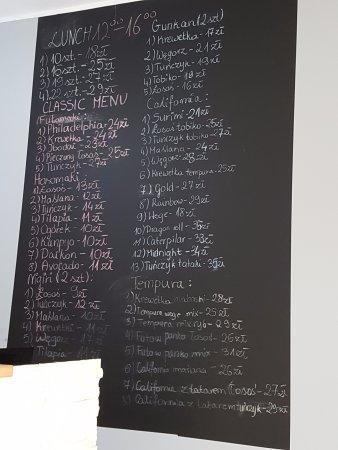 LUNCH 12⁰⁰-16⁰⁰
1) 10 szt. - 18 zł
2) 16 szt. - 25 zł
3) 18 szt. - 27 zł
4) 22 szt. - 29 zł
CLASSIC MENU
Futomaki:
1) Philadelphia - 24 zł
2) Krewetka - 24 zł
3) Łosoś - 23 zł
4) Pieczony Łosoś - 25 zł
5) Tuńczyk - 27 zł
Hosomaki:
1) Łosoś - 13 zł
2) Maślana - 12 zł
3) Tuńczyk - 14 zł
4) Tilapia - 11 zł
5) Ogórek - 10 zł
6) Kanpyo - 10 zł
7) Daikon - 10 zł
8) Avocado - 11 zł
Nigiri (2 szt):
1) Łosoś - 9 zł
2) Tuńczyk - 12 zł
3) Maślana - 10 zł
4) Krewetki - 11 zł
5) Węgorz - 17 zł
Tilapia - 11 zł
Gunkan (2 szt)
1) Krewetka - 17 zł
2) Węgorz - 21 zł
3) Tuńczyk - 19 zł
4) Tobiko - 19 zł
5) Łosoś - 16 zł
California:
1) Surimi - 21 zł
2) Łosoś tobiko - 25 zł
3) Tuńczyk tobiko - 27 zł
4) Maślana - 24 zł
5) Węgorz - 28 zł
6) Krewetka tempura - 25 zł
7) Gold - 27 zł
8) Rainbow - 29 zł
9) Wege - 18 zł
10) Dragon roll - 35 zł
11) Caterpilar - 33 zł
12) Midnight - 34 zł
13) Tuńczyk tataki - 35 zł
Tempura:
1) Krewetka - 28 zł
2) Tempura wege mix - 25 zł
3) Tempura mix ryb - 29 zł
4) Futo w panko Łosoś - 26 zł
5) Futo w panko mix - 31 zł
6) California maślana - 26 zł
7) California z tatarem Łosoś - 27 zł
8) California z tatarem tuńczyk - 29 zł